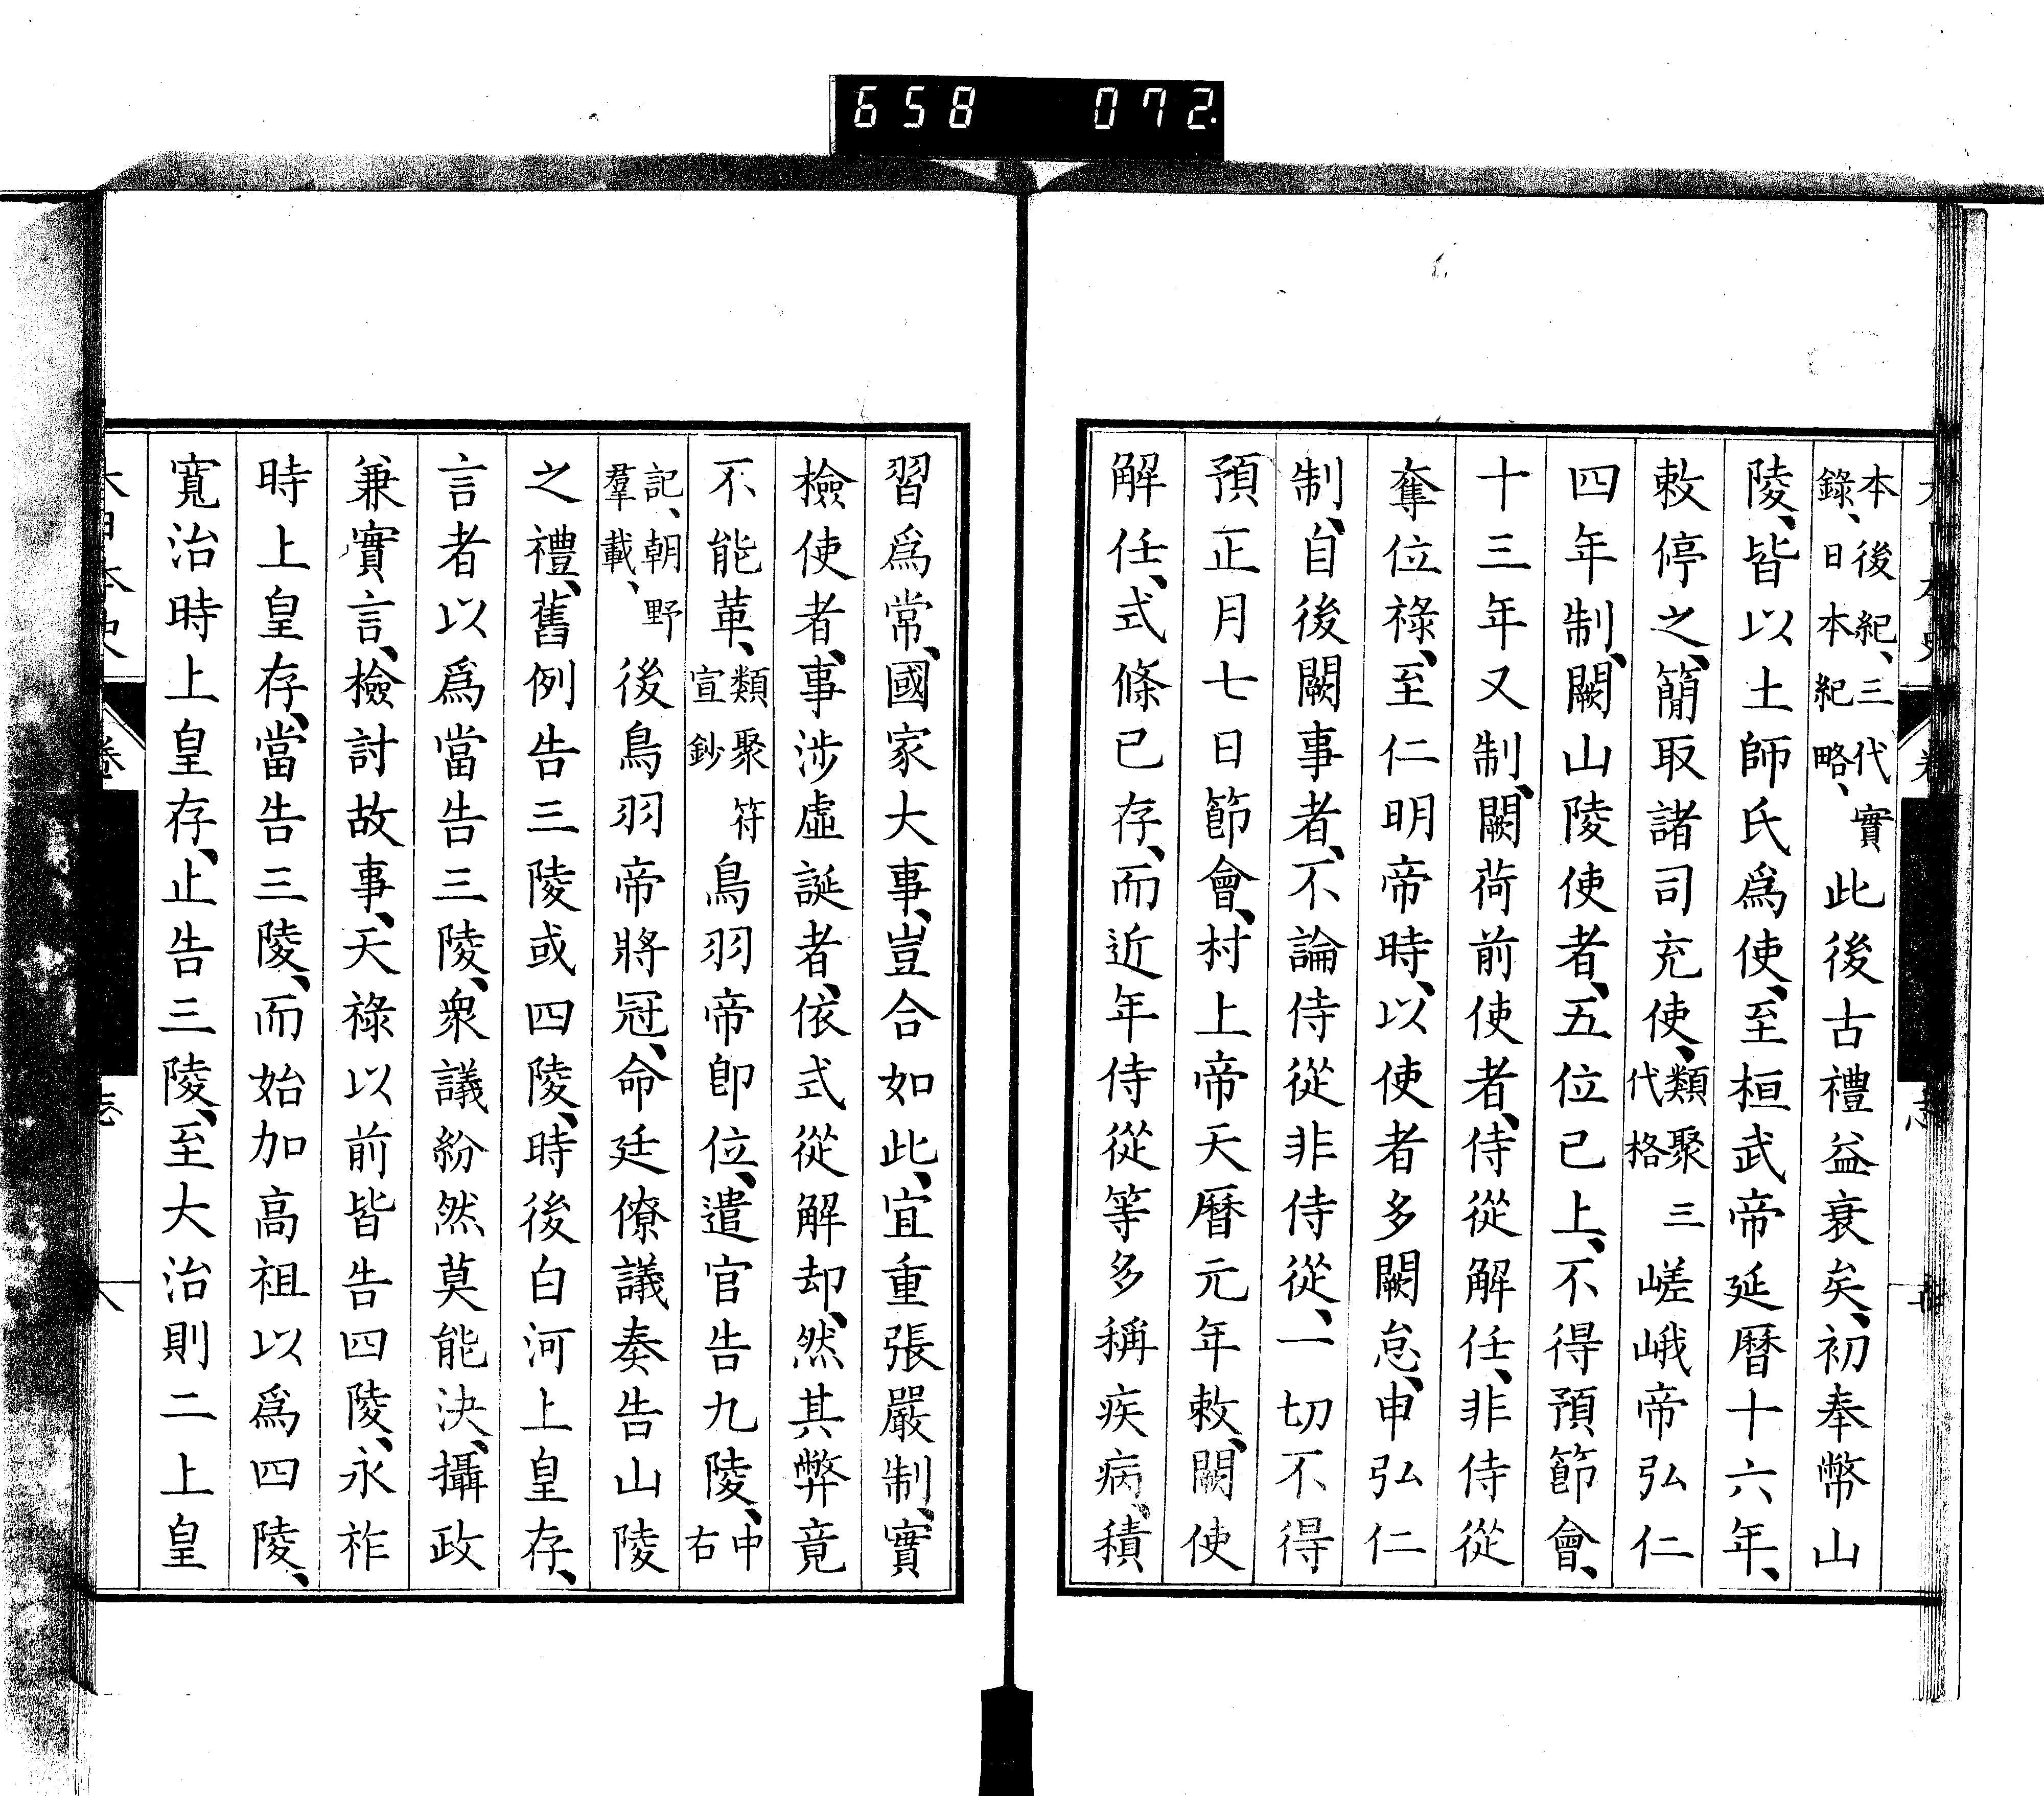 658 072.
本後紀、三代實錄、日本紀略、此後古禮益衰矣、初奉幣山
陵、皆以土師氏爲使、至桓武帝延曆十六年、
敕停之、簡取諸司充使、類聚三代格嵯峨帝弘仁
四年制、闕山陵使者、五位已上、不得預節會、
十三年又制、闕荷前使者、侍從解任、非侍從
奪位祿、至仁明帝時、以使者多闕怠、申弘仁
制、自後闕事者、不論侍從非侍從、一切不得
預正月七日節會、村上帝天曆元年敕、闕使
解任、式條已存、而近年侍從等多稱疾病、積
習爲常、國家大事、豈合如此、宜重張嚴制、實
檢使者、事涉虛誕者、依式從解却、然其弊竟
不能革、類聚符宣鈔鳥羽帝卽位、遣官告九陵、中右
記、朝野羣載、後鳥羽帝將冠、命廷僚議奏告山陵
之禮、舊例告三陵或四陵、時後白河上皇存、
言者以爲當告三陵、衆議紛然莫能決、攝政
兼實言、檢討故事、天祿以前皆告四陵、永祚
時上皇存、當告三陵、而始加高祖以爲四陵、
寬治時上皇存、止告三陵、至大治則二上皇